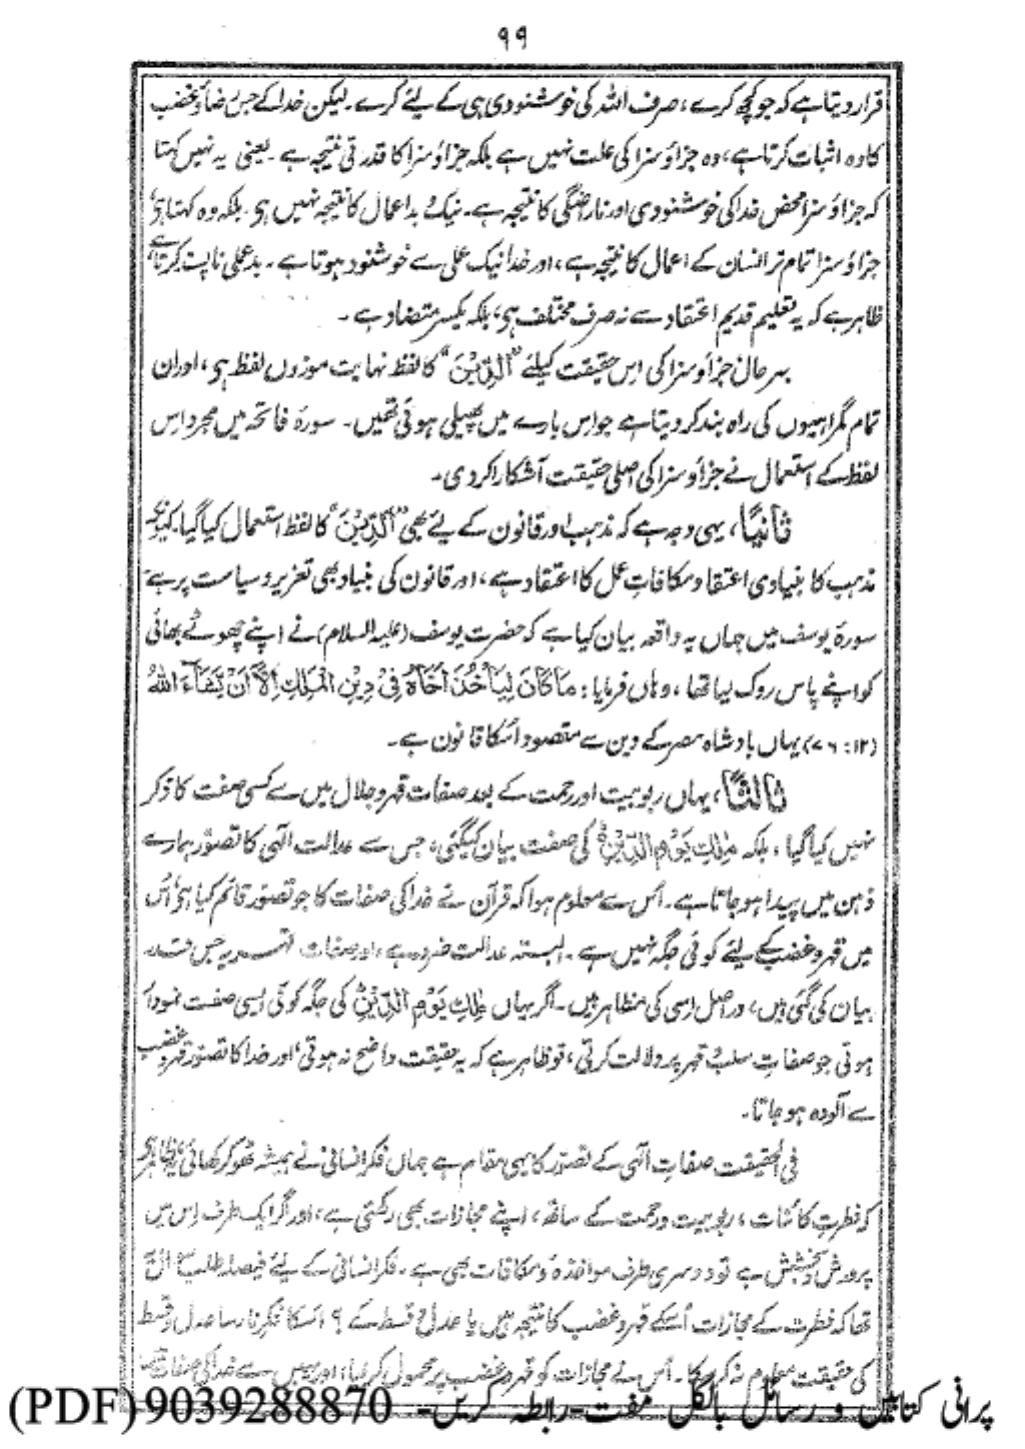 ۹۹
قرار دیتا ہے کہ جو کچھ کرے، صرف اللہ کی خوشنودی ہی کے لیے کرے۔ لیکن خدا کے جس رضا و غضب
کا وہ اثبات کرتا ہے، وہ جزاؤ سزا کی علت نہیں ہے بلکہ جزاؤ سزا کا قدرتی نتیجہ ہے۔ یعنی یہ نہیں کہتا
کہ جزاؤ سزا محض خدا کی خوشنودی اور ناراضگی کا نتیجہ ہے۔ نیک و بد اعمال کا نتیجہ نہیں ہی۔ بلکہ وہ کہتا ہی
جزاؤ سزا تمام تر انسان کے اعمال کا نتیجہ ہے، اور خدا نیک عملی سے خوشنود ہوتا ہے۔ بد عملی ناپسند کرتا ہے
ظاہر ہے کہ یہ تعلیم قدیم اعتقاد سے نہ صرف مختلف ہی، بلکہ یکسر متضاد ہے۔
بہرحال جزاؤ سزا کی اس حقیقت کیلئے "الدِّیْنَ" کا لفظ نہایت موزوں لفظ ہی، اور ان
تمام گمراہیوں کی راہ بند کردیتا ہے جو اس بارے میں پھیلی ہوئی تھیں۔ سورۃ فاتحہ میں مجرد اس
لفظ کے استعمال نے جزاؤ سزا کی اصلی حقیقت آشکارا کردی۔
ثانیًا، یہی وجہ ہے کہ مذہب اور قانون کے لیے بھی "اَلدِّیْنَ" کا لفظ استعمال کیا گیا کیونکہ
مذہب کا بنیادی اعتقاد مکافاتِ عمل کا اعتقاد ہے، اور قانون کی بنیاد بھی تعزیر و سیاست پر ہے
سورۃ یوسف میں جہاں یہ واقعہ بیان کیا ہے کہ حضرت یوسف (علیہ السلام) نے اپنے چھوٹے بھائی
کو اپنے پاس روک لیا تھا، وہاں فرمایا: مَا کَانَ لِیَأْخُذَ اَخَاہُ فِیْ دِیْنِ الْمَلِکِ اِلَّا اَنْ یَّشَآءَ اللّٰہُ
(۱۲: ۷۶) یہاں بادشاہ مصر کے دین سے مقصود اسکا قانون ہے۔
ثالثًا، یہاں ربوبیت اور رحمت کے بعد صفات قہر و جلال میں سے کسی صفت کا ذکر
نہیں کیا گیا، بلکہ مٰلِکِ یَوْمِ الدِّیْنِ کی صفت بیان کیگئی، جس سے عدالت الٰہی کا تصور ہمارے
ذہن میں پیدا ہوجاتا ہے۔ اس سے معلوم ہوا کہ قرآن نے خدا کی صفات کا جو تصور قائم کیا ہی، اس
میں قہر و غضب کے لیئے کوئی جگہ نہیں ہے۔ البتہ عدالت ضرور ہے، اور صفات قہریہ جس قدر
بیان کی گئی ہیں، دراصل اسی کی مظاہر ہیں۔ اگر یہاں مٰلِکِ یَوْمِ الدِّیْنِ کی جگہ کوئی ایسی صفت نمودار
ہوتی جو صفاتِ سلب و قہر پر دلالت کرتی، تو ظاہر ہے کہ یہ حقیقت واضح نہ ہوتی، اور خدا کا تصور قہر و غضب
سے آلودہ ہوجاتا۔
فی الحقیقت صفاتِ الٰہی کے تصور کا یہی مقام ہے جہاں فکر انسانی نے ہمیشہ ٹھوکر کھائی، یہ ظاہر ہی
کہ فطرتِ کائنات، ربوبیت و رحمت کے ساتھ، اپنے مجازات بھی رکھتی ہے، اور اگر ایک طرف اس میں
پرورش و بخشش ہے تو دوسری طرف مواخذہ و مکافات بھی ہے۔ فکر انسانی کے لیئے فیصلہ طلب سوال
تھا کہ فطرت کے مجازات اُسکے قہر و غضب کا نتیجہ ہیں یا عدل و قسط کے؟ اسکا فکر نارسا عدل و قسط
کی حقیقت معلوم نہ کرسکا۔ اُس نے مجازات کو قہر و غضب پر محمول کرلیا، اور یہیں سے خدا کی صفات
پرانی کتابیں و رسائل بالکل مفت۔ رابطہ کریں۔ 9039288870 (PDF)